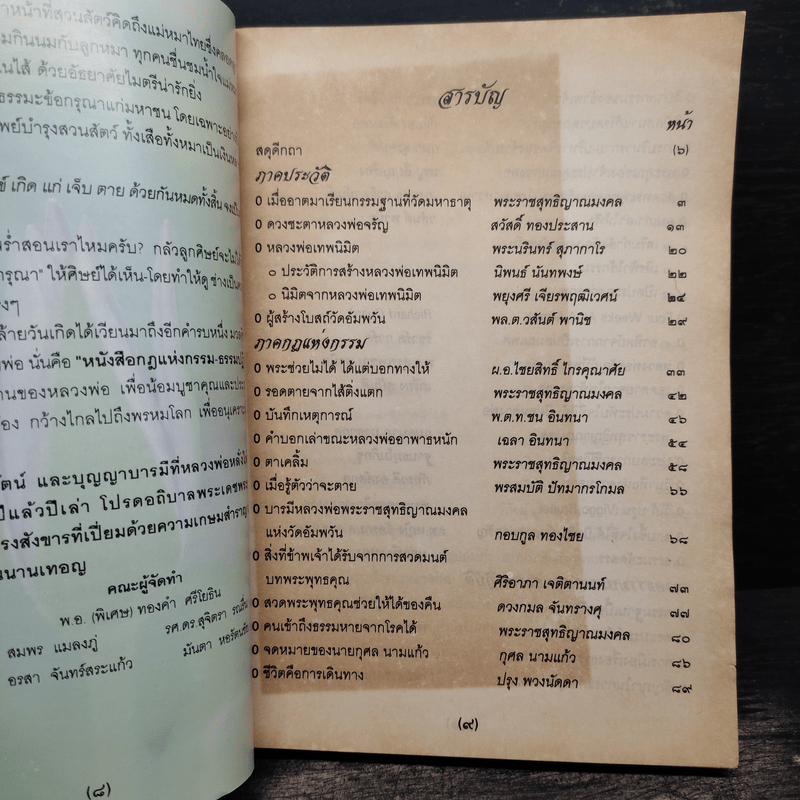 าหน้าที่สวนสัตว์คิดถึงแม่หมาไทยซึ่งคลอด
มกินนมกับลูกหมา ทุกคนชื่นชมน้ำใจแม่
นไส้ ด้วยอัธยาศัยไมตรีน่ารักยิ่ง
ธรรมะข้อกรุณาแก่มหาชน โดยเฉพาะอย่าง
พย์บำรุงสวนสัตว์ ทั้งเสือทั้งหมาเป็นเงิน
ข์ เกิด แก่ เจ็บ ตาย ด้วยกันหมดทั้งสิ้น จงเป็น
พร่ำสอนเราไหมครับ? กลัวลูกศิษย์จะไม่ได้
กรุณา" ให้ศิษย์ได้เห็น-โดยทำให้ดู ช่างเป็น
งๆ
ล้ายวันเกิดได้เวียนมาถึงอีกคำรบหนึ่ง
งพ่อ นั่นคือ "หนังสือกฎแห่งกรรม-ธรรมปฏิ
านของหลวงพ่อ เพื่อน้อมบูชาคุณและ
อง กว้างไกลไปถึงพรหมโลก เพื่ออนุเคราะ
รัตน์ และบุญญาบารมีที่หลวงพ่อหลั่ง
ปีแล้วปีเล่า โปรดอภิบาลพระเดชพระ
รงสังขารที่เปี่ยมด้วยความเกษมสำราญ
นนานเทอญ
คณะผู้จัดทำ
พ.อ. (พิเศษ) ทองคำ ศรีโยธิน
สมพร แมลงภู่ รศ.ดร.สุจิตรา รณรื่น
อรสา จันทร์สระแก้ว มันตา หอรัตนชัย
(๘)
สารบัญ
หน้า
สดุดีกถา (๖)
ภาคประวัติ
0 เมื่ออาตมาเรียนกรรมฐานที่วัดมหาธาตุ พระราชสุทธิญาณมงคล ๓
0 ดวงชะตาหลวงพ่อจรัญ สวัสดิ์ ทองประสาน ๑๓
0 หลวงพ่อเทพนิมิต พระนรินทร์ สุภากาโร ๒๐
o ประวัติการสร้างหลวงพ่อเทพนิมิต นิพนธ์ นันทพงษ์ ๒๒
o นิมิตจากหลวงพ่อเทพนิมิต พยุงศรี เจียรพฤฒิเวศน์ ๒๔
0 ผู้สร้างโบสถ์วัดอัมพวัน พล.ต.วสันต์ พานิช ๒๙
ภาคกฎแห่งกรรม
0 พระช่วยไม่ได้ ได้แต่บอกทางให้ ผ.อ.ไชยสิทธิ์ ไกรคุณาศัย ๓๓
0 รอดตายจากไส้ติ่งแตก พระราชสุทธิญาณมงคล ๔๒
0 บันทึกเหตุการณ์ พ.ต.ท.ชน อินทนา ๔๖
0 คำบอกเล่าขณะหลวงพ่ออาพาธหนัก เฉลา อินทนา ๕๔
0 ตาเคลิ้ม พระราชสุทธิญาณมงคล ๕๘
0 เมื่อรู้ตัวว่าจะตาย พรสมบัติ ปัทมากรโกมล ๖๖
0 บารมีหลวงพ่อพระราชสุทธิญาณมงคล
แห่งวัดอัมพวัน กอบกูล ทองไชย ๖๘
0 สิ่งที่ข้าพเจ้าได้รับจากการสวดมนต์
บทพระพุทธคุณ ศิริอาภา เจติตานนท์ ๗๓
0 สวดพระพุทธคุณช่วยให้ได้ของคืน ดวงกมล จันทรางศุ ๗๗
0 คนเข้าถึงธรรมหายจากโรคได้ พระราชสุทธิญาณมงคล ๘๐
0 จดหมายของนายกุศล นามแก้ว กุศล นามแก้ว ๘๖
0 ชีวิตคือการเดินทาง ปรุง พวงนัดดา ๘๙
(๙)